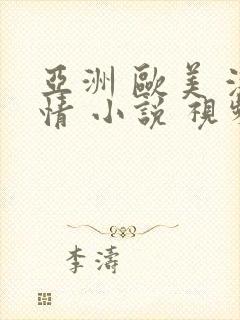 亞洲 歐美
情 小說 視
李濤